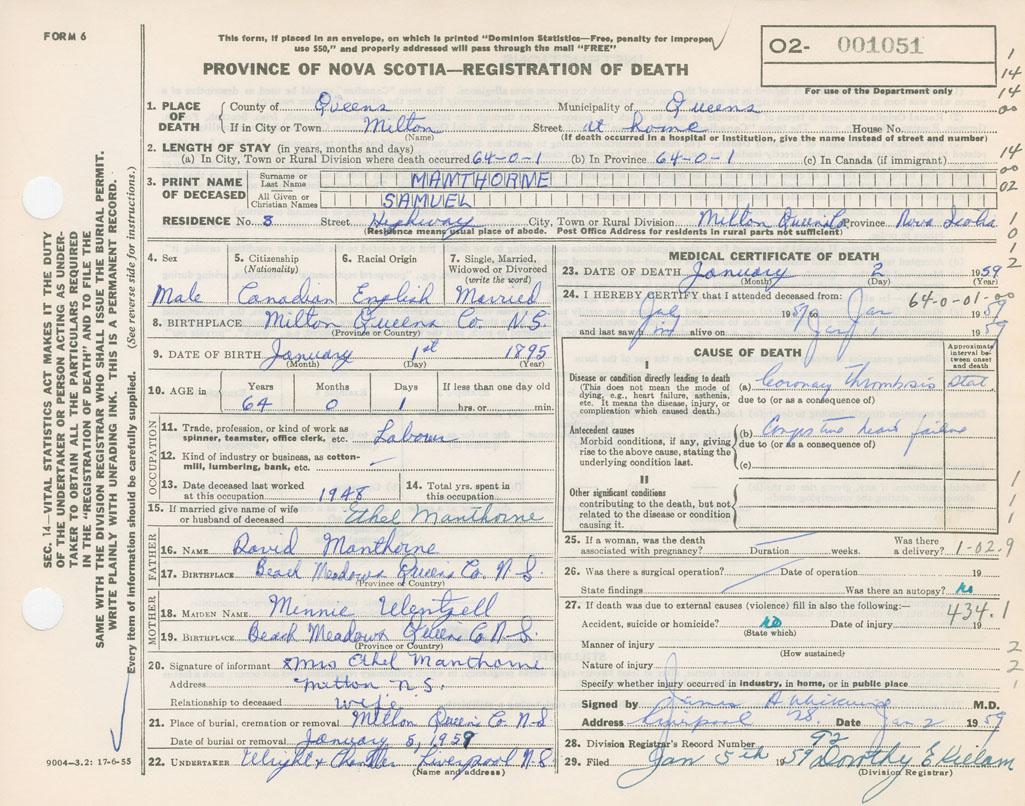 FORM 6
This form, if placed in an envelope, on which is printed "Dominion Statistics—Free, penalty for improper
use $50," and properly addressed will pass through the mail "FREE"
O2- 001051
For use of the Department only
PROVINCE OF NOVA SCOTIA—REGISTRATION OF DEATH
1. PLACE OF DEATH County of Queens Municipality of Queens
If in City or Town Milton Street at home House No.
(Name) (If death occurred in a hospital or institution, give the name instead of street and number)
2. LENGTH OF STAY (in years, months and days)
(a) In City, Town or Rural Division where death occurred 64-0-1 (b) In Province 64-0-1 (c) In Canada (if immigrant)
3. PRINT NAME OF DECEASED Surname or Last Name MANTHORNE
All Given or Christian Names SAMUEL
RESIDENCE No. 8 Street Highway City, Town or Rural Division Milton Queens Co Province Nova Scotia
(Residence means usual place of abode. Post Office Address for residents in rural parts not sufficient)
4. Sex Male
5. Citizenship (Nationality) Canadian
6. Racial Origin English
7. Single, Married, Widowed or Divorced (write the word) Married
8. BIRTHPLACE Milton Queens Co. N.S.
(Province or Country)
9. DATE OF BIRTH January 1st 1895
(Month) (Day) (Year)
10. AGE in Years 64 Months 0 Days 1 If less than one day old hrs. or min.
OCCUPATION
11. Trade, profession, or kind of work as spinner, teamster, office clerk, etc. Labour
12. Kind of industry or business, as cotton-mill, lumbering, bank, etc. —
13. Date deceased last worked at this occupation 1948
14. Total yrs. spent in this occupation
15. If married give name of wife or husband of deceased Ethel Manthorne
FATHER
16. NAME David Manthorne
17. BIRTHPLACE Beach Meadows Queens Co. N.S.
(Province or Country)
MOTHER
18. MAIDEN NAME Minnie Wentzell
19. BIRTHPLACE Beach Meadows Queens Co N.S.
(Province or Country)
20. Signature of informant x Mrs Ethel Manthorne
Address Milton N.S.
Relationship to deceased wife
21. Place of burial, cremation or removal Milton Queens Co N-S
Date of burial or removal January 5, 1959
22. UNDERTAKER Wright & Chandler Liverpool N.S.
(Name and address)
MEDICAL CERTIFICATE OF DEATH
23. DATE OF DEATH January 2 1959
(Month) (Day) (Year)
64-0-01-00
24. I HEREBY CERTIFY that I attended deceased from:
Jan 1959
and last saw him alive on Jan 1 1959
CAUSE OF DEATH
Approximate interval between onset and death
I
Disease or condition directly leading to death
(This does not mean the mode of dying, e.g., heart failure, asthenia, etc. It means the disease, injury, or complication which caused death.)
(a) Coronary Thrombosis stat
due to (or as a consequence of)
Antecedent causes
Morbid conditions, if any, giving rise to the above cause, stating the underlying condition last.
(b) Congestive heart failure
due to (or as a consequence of)
(c)
II
Other significant conditions
contributing to the death, but not related to the disease or condition causing it.
25. If a woman, was the death associated with pregnancy? Duration weeks. Was there a delivery?
1-02.9
26. Was there a surgical operation? Date of operation 19
State findings Was there an autopsy? No
27. If death was due to external causes (violence) fill in also the following:—
434.1
Accident, suicide or homicide? no Date of injury 19
(State which)
Manner of injury
(How sustained)
Nature of injury
Specify whether injury occurred in industry, in home, or in public place
Signed by M.D.
Address Liverpool NS. Date Jan 2 1959
28. Division Registrar's Record Number 92
29. Filed Jan 5th 1959 Dorothy E Killam
(Division Registrar)
SEC. 14—VITAL STATISTICS ACT MAKES IT THE DUTY
OF THE UNDERTAKER OR PERSON ACTING AS UNDER-
TAKER TO OBTAIN ALL THE PARTICULARS REQUIRED
IN THE "REGISTRATION OF DEATH" AND TO FILE THE
SAME WITH THE DIVISION REGISTRAR WHO SHALL ISSUE THE BURIAL PERMIT.
WRITE PLAINLY WITH UNFADING INK. THIS IS A PERMANENT RECORD.
Every item of information should be carefully supplied. (See reverse side for instructions.)
9004—3.2: 17-6-55
1
14
14
00
14
00
02
1
0
1
2
1
1
1
2
2
1